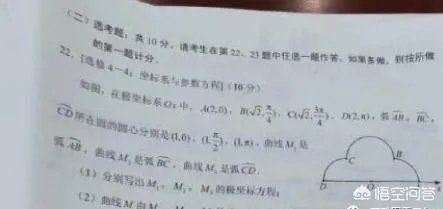 (二)选考题:共10分。请考生在第22、23题中任选一题作答。如果多做,则按所做
的第一题计分.
22.[选修4-4:坐标系与参数方程](10分)
如图,在极坐标系Ox中,A(2,0),B(√2,π/4),C(√2,3π/4),D(2,π),弧AB,BC,
CD所在圆的圆心分别是(1,0),(1,π/2),(1,π),曲线M₁是
弧AB,曲线M₂是弧BC,曲线M₃是弧CD.
(1)分别写出M₁,M₂,M₃的极坐标方程;
(2)曲线M由M₁
C
B
D
O
悟空问答